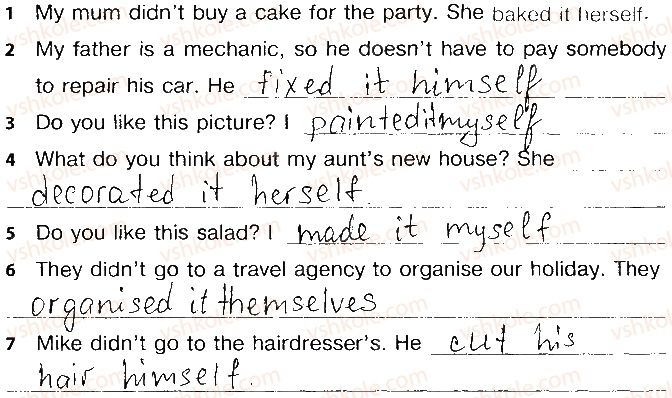 1 My mum didn't buy a cake for the party. She baked it herself.
2 My father is a mechanic, so he doesn't have to pay somebody
to repair his car. He fixed it himself
3 Do you like this picture? I painted it myself
4 What do you think about my aunt's new house? She
decorated it herself
5 Do you like this salad? I made it myself
6 They didn't go to a travel agency to organise our holiday. They
organised it themselves
7 Mike didn't go to the hairdresser's. He cut his
hair himself.